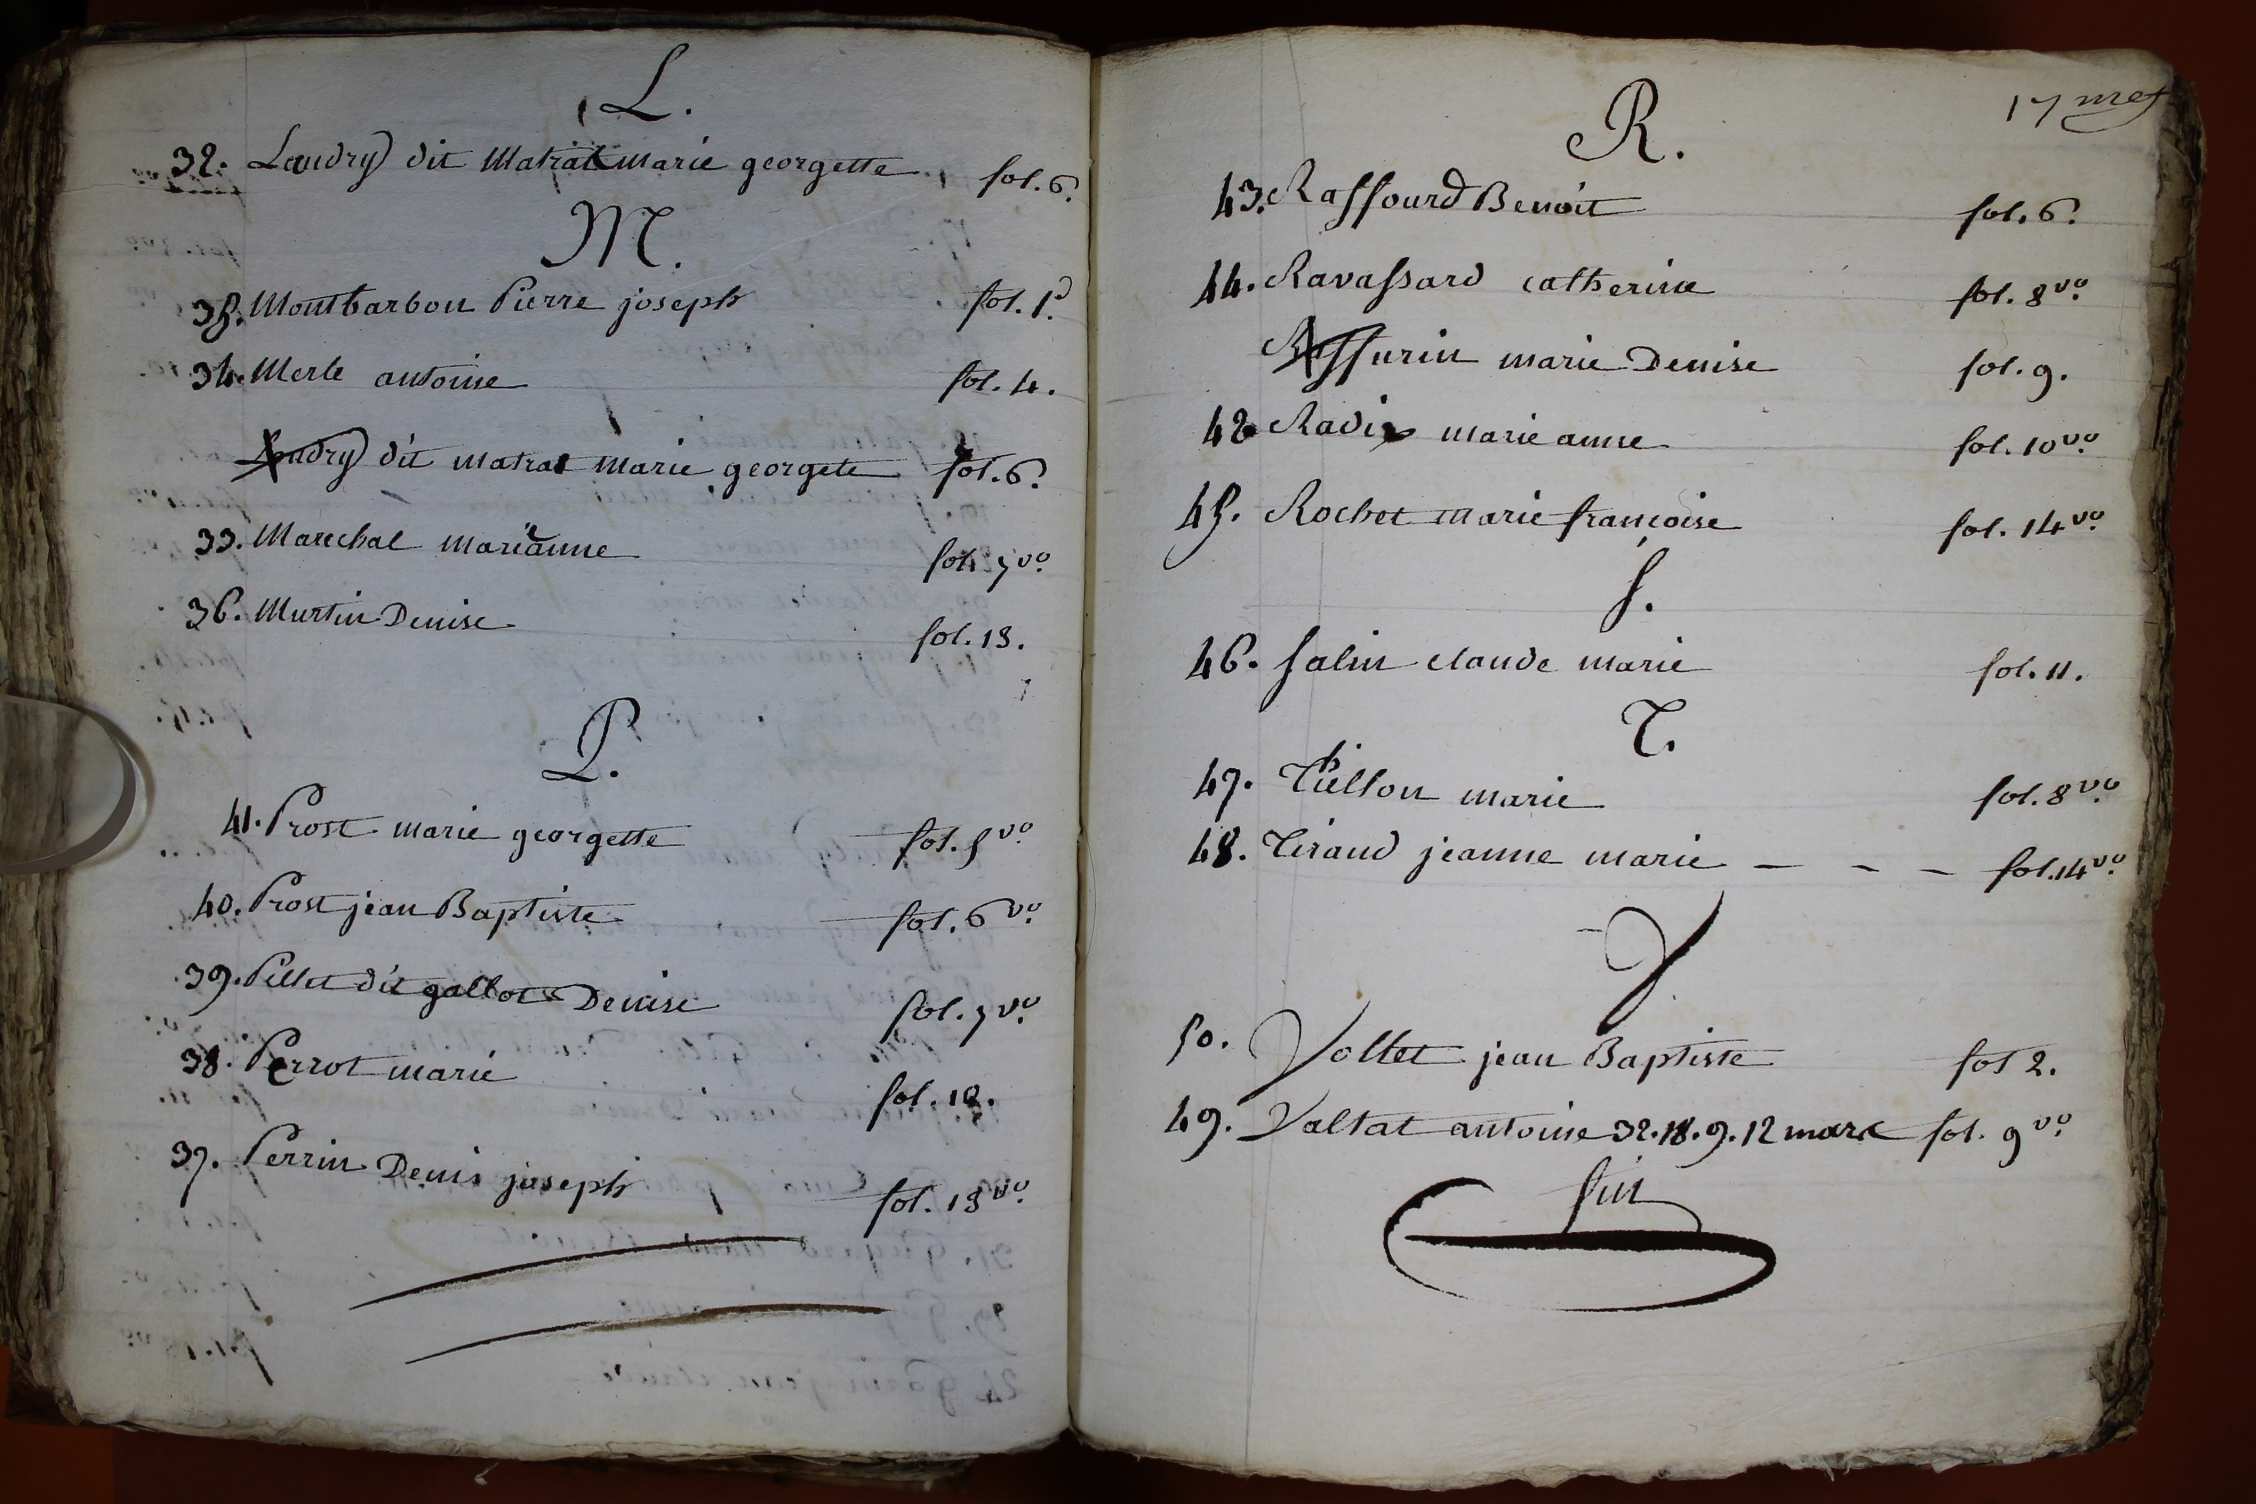 L.
32. Laudry dit Matrat marie georgette fol. 6.
M.
35. Montbarbon Pierre joseph fol. 1.
34. Merle antoine fol. 4.
Laudry dit matrat marie georgete fol. 6.
33. Marechal marieanne fol. 7 vo.
36. Murtin Denise fol. 13.
P.
41. Prost marie georgette fol. 5 vo.
40. Prost jean Baptiste fol. 6 vo.
39. Pillet dit gallot Denise fol. 7 vo.
38. Perrot marie fol. 12.
37. Perrin Denis joseph fol. 13 vo.
17 me
R.
43. Raffourd Benoit fol. 6.
44. Ravassard catherine fol. 8 vo.
Raffurin marie Denise fol. 9.
42 Radix marie anne fol. 10 vo.
45. Rochet marie françoise fol. 14 vo.
S.
46. Salin claude marie fol. 11.
T.
47. Thillon marie fol. 8 vo.
48. Tiraud jeanne marie — - - fol. 14 vo.
V
50. Vollet jean Baptiste fol 2.
49. Valtat antoine 32. 18. 9. 12 marc fol. 9 vo.
fin